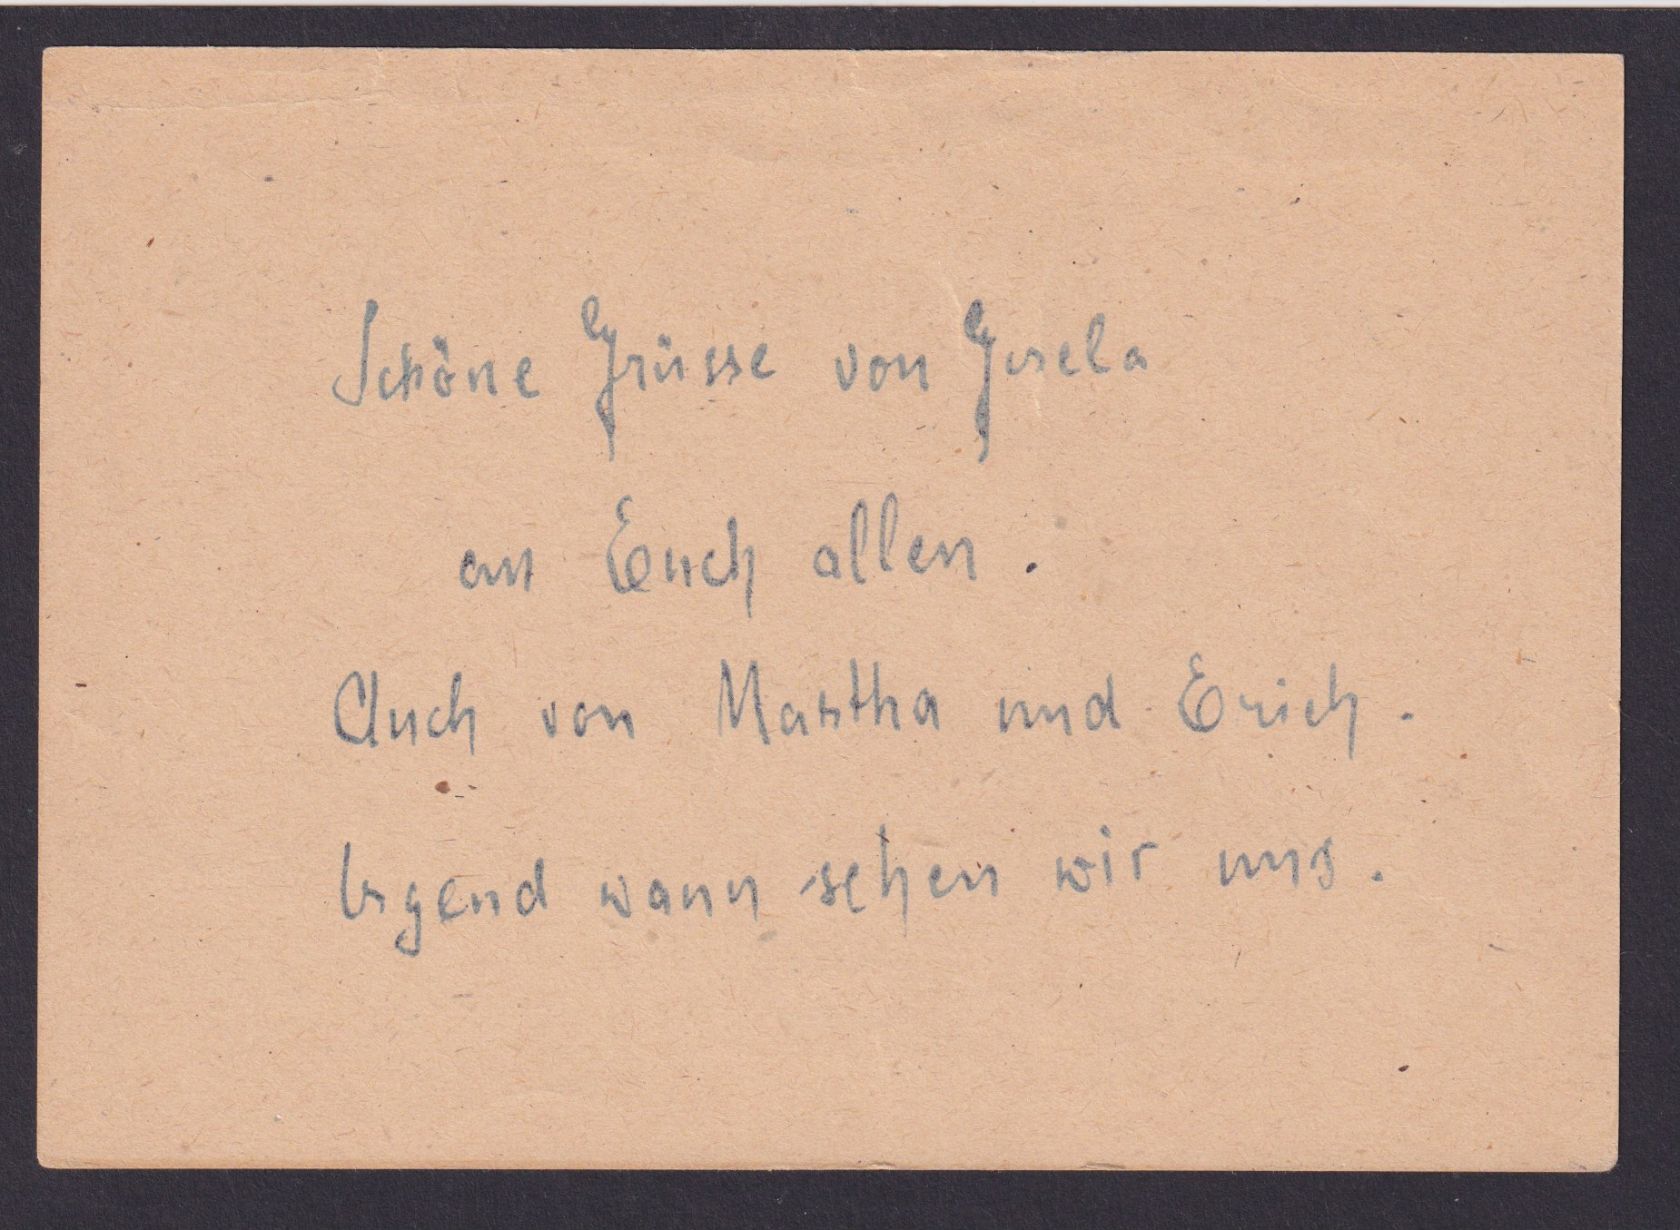 Schöne Grüsse von Gisela
an Euch allen.
Auch von Martha und Erich.
Irgend wann sehen wir uns.